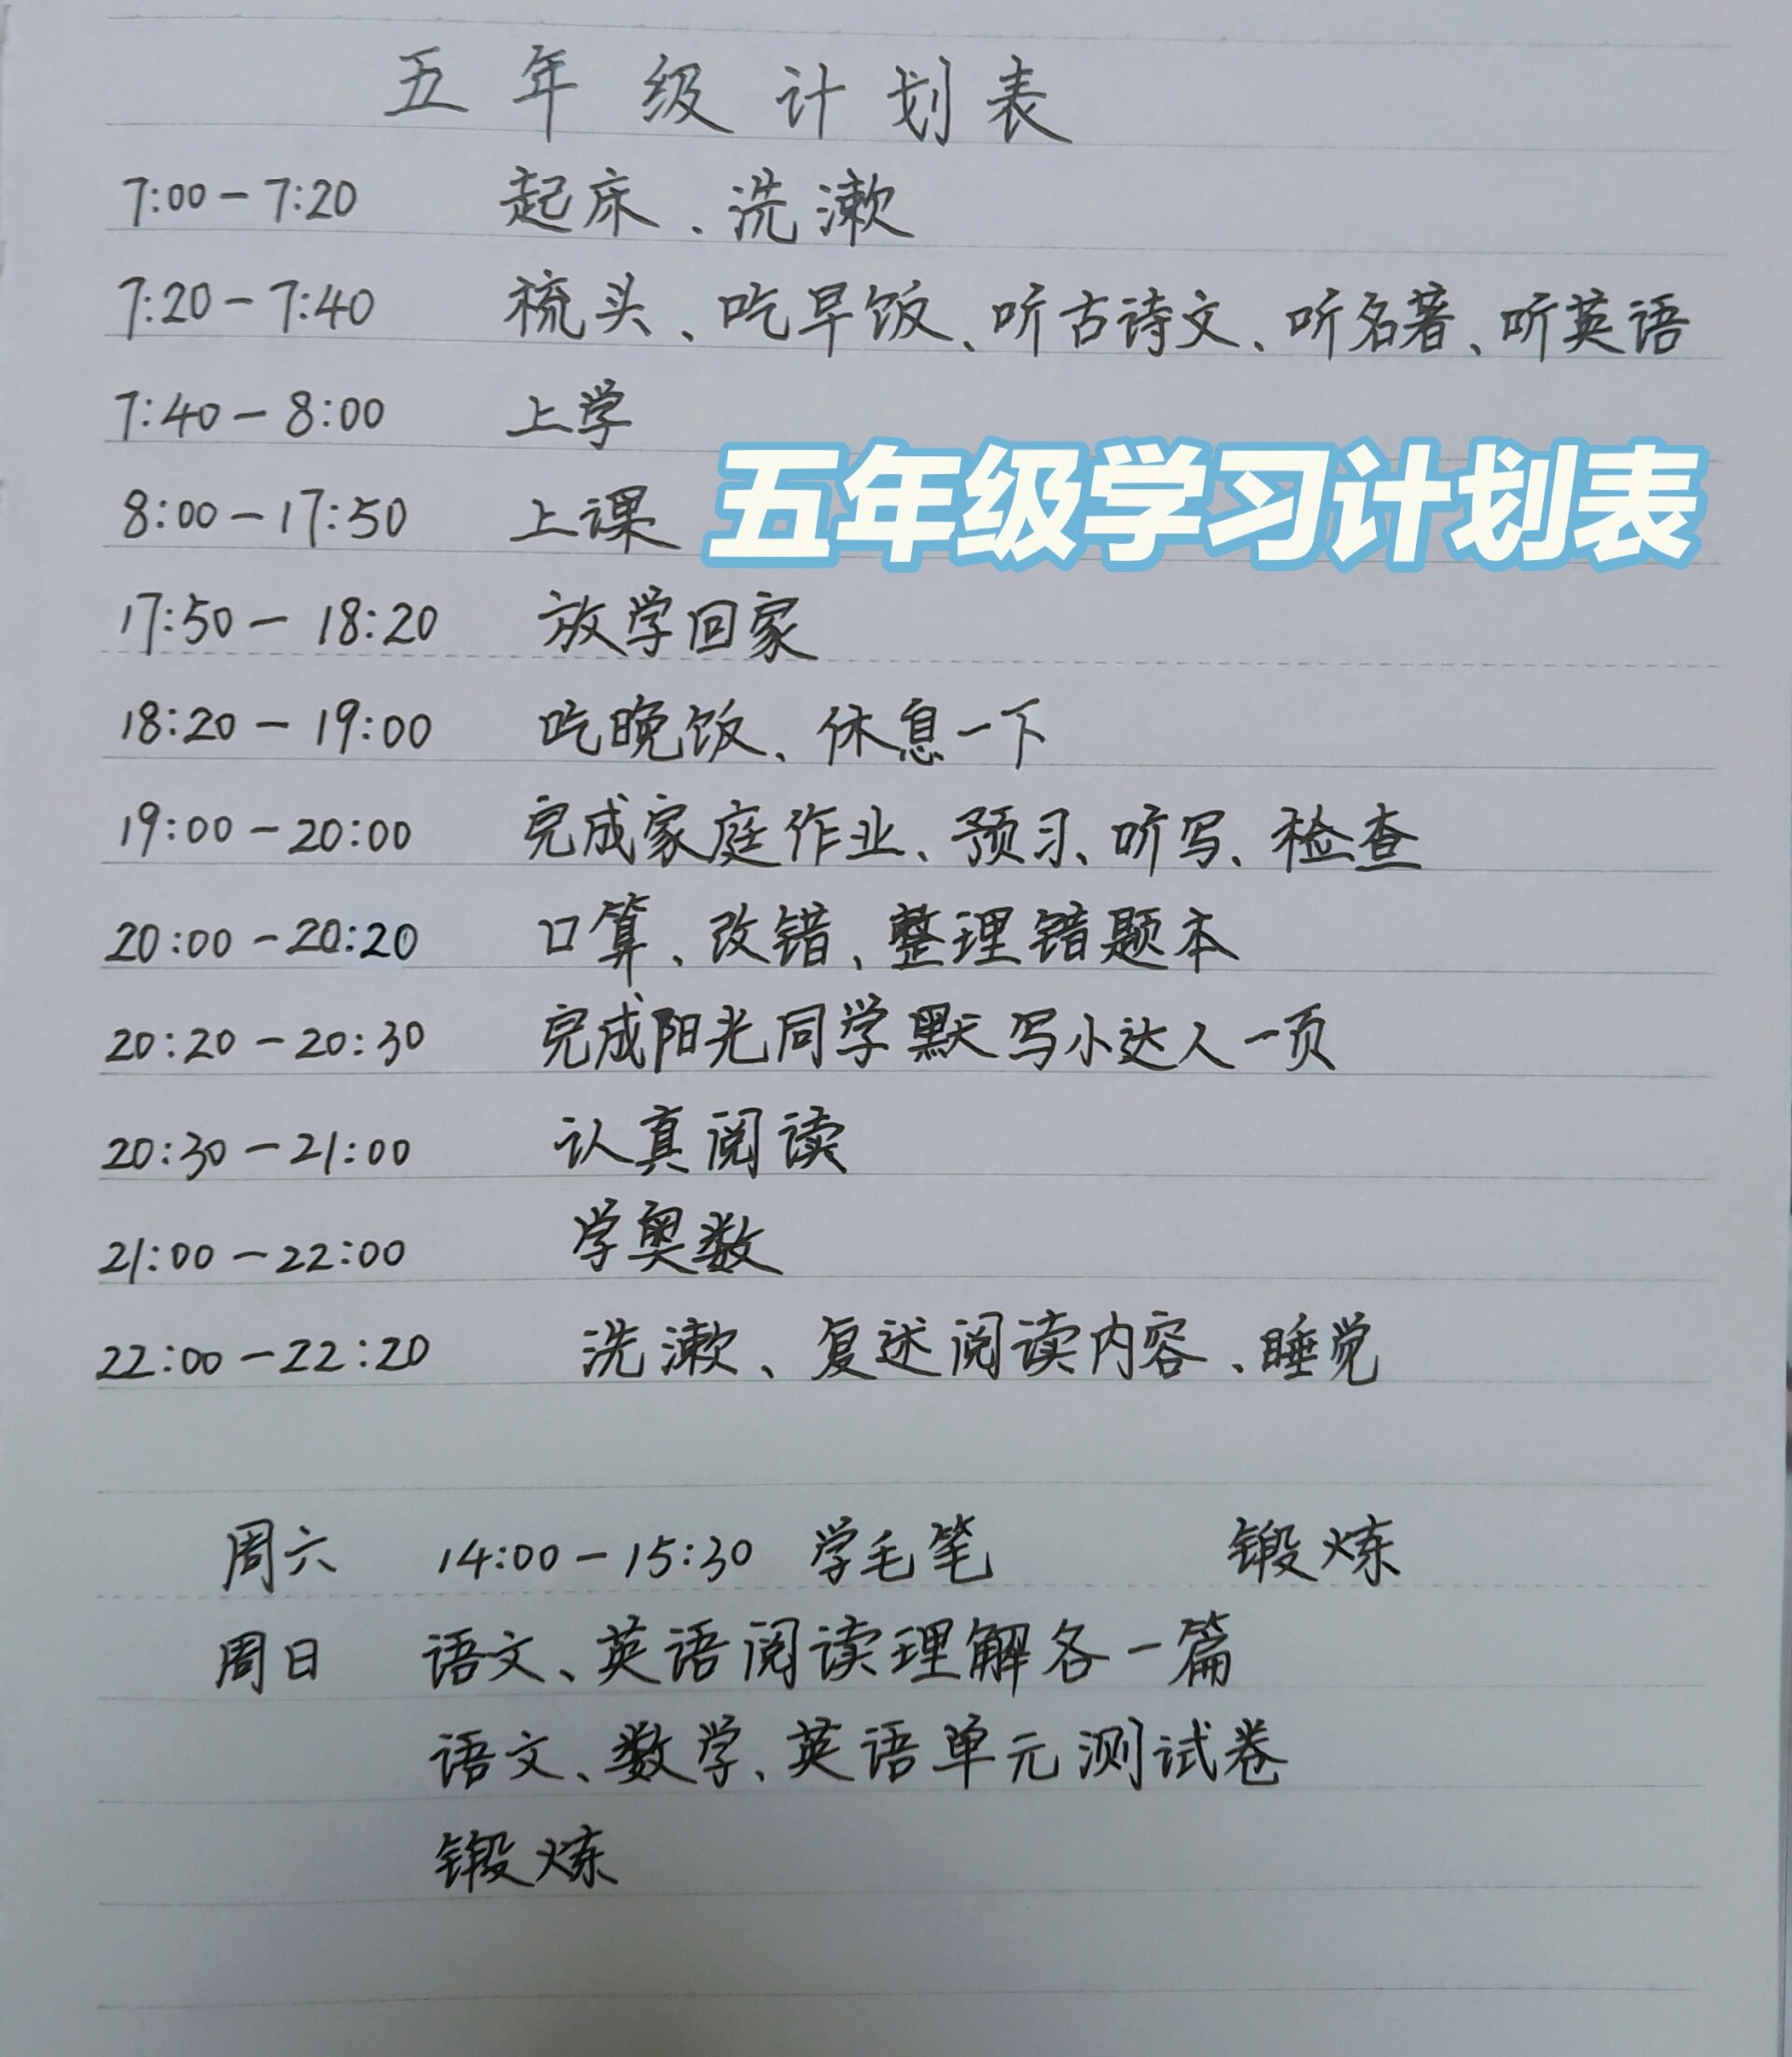 五年级计划表
7:00-7:20 起床、洗漱
7:20-7:40 梳头、吃早饭、听古诗文、听名著、听英语
7:40-8:00 上学
五年级学习计划表
8:00-17:50 上课
17:50-18:20 放学回家
18:20-19:00 吃晚饭、休息一下
19:00-20:00 完成家庭作业、预习、听写、检查
20:00-20:20 口算、改错、整理错题本
20:20-20:30 完成阳光同学默写小达人一页
20:30-21:00 认真阅读
21:00-22:00 学奥数
22:00-22:20 洗漱、复述阅读内容、睡觉
周六 14:00-15:30 学毛笔 锻炼
周日 语文、英语阅读理解各一篇
语文、数学、英语单元测试卷
锻炼